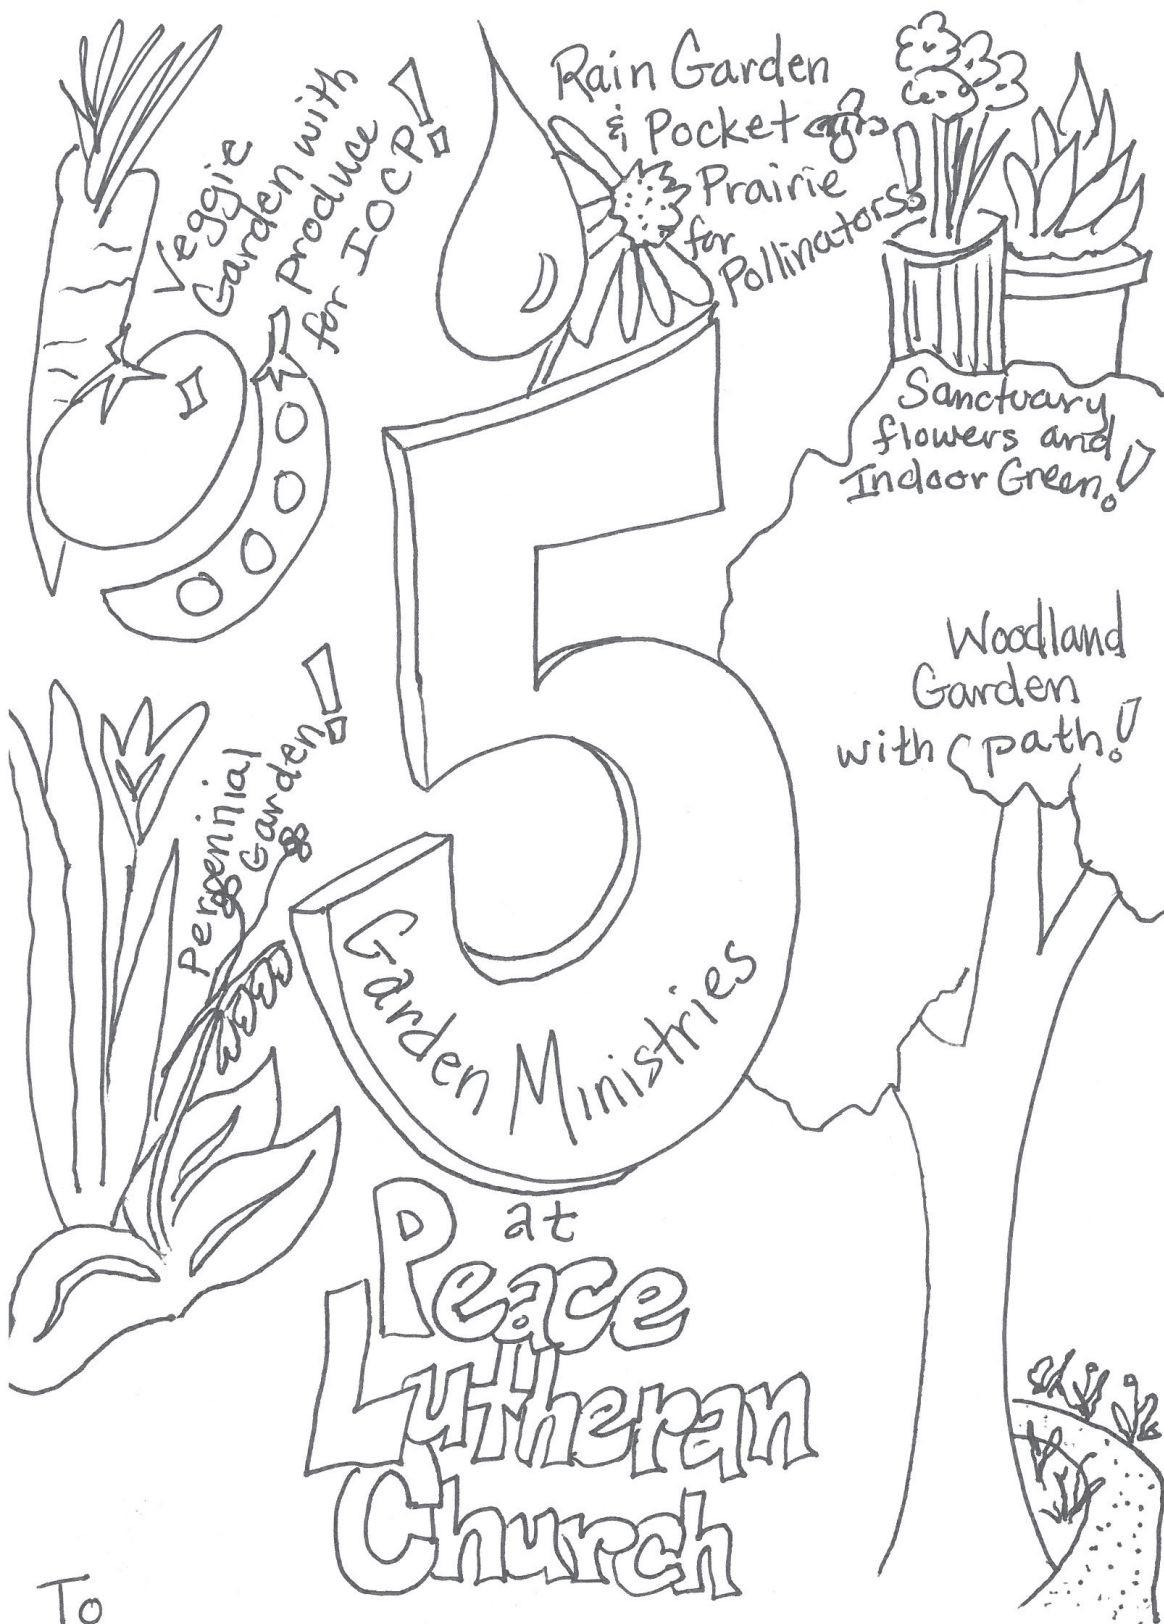 Veggie
Garden with
produce
for IOCP!
Rain Garden
& Pocket
Prairie
for
Pollinators!
Sanctuary
flowers and
Indoor Green!
Woodland
Garden
with path!
Perennial
Garden!
5
Garden Ministries
at
Peace
Lutheran
Church
To